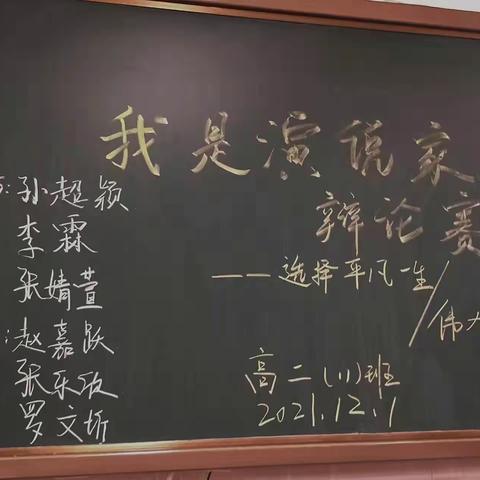 我是演说家
辩论赛
——选择平凡一生/伟大
高二(11)班
2021.12.1
:孙超颖
李霖
张婧萱
:赵嘉跃
张乐
罗文圻